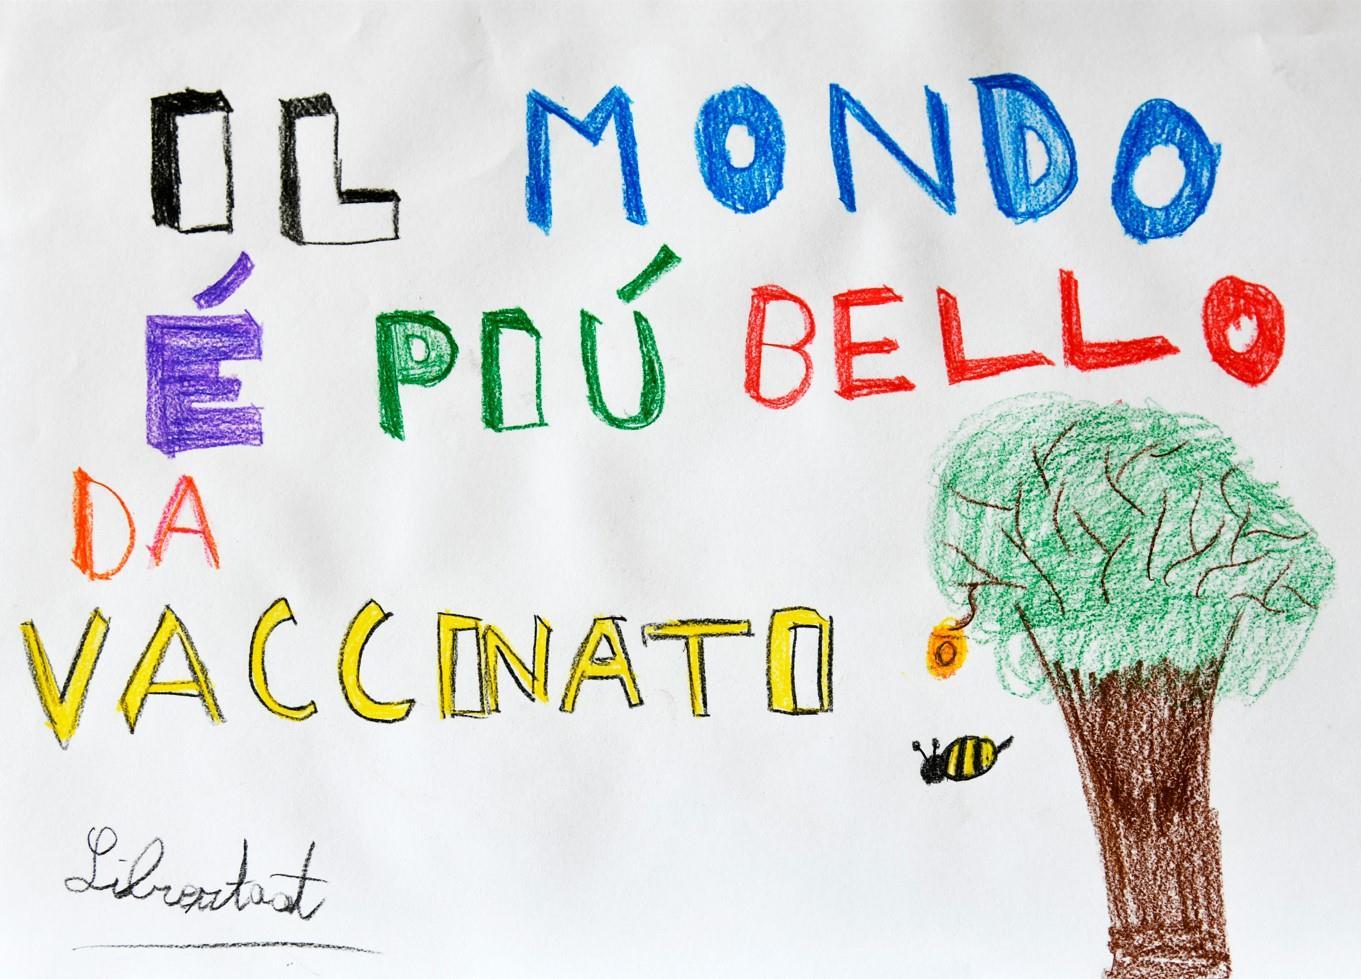 IL MONDO
É PIÚ BELLO
DA
VACCINATO
Libertaat